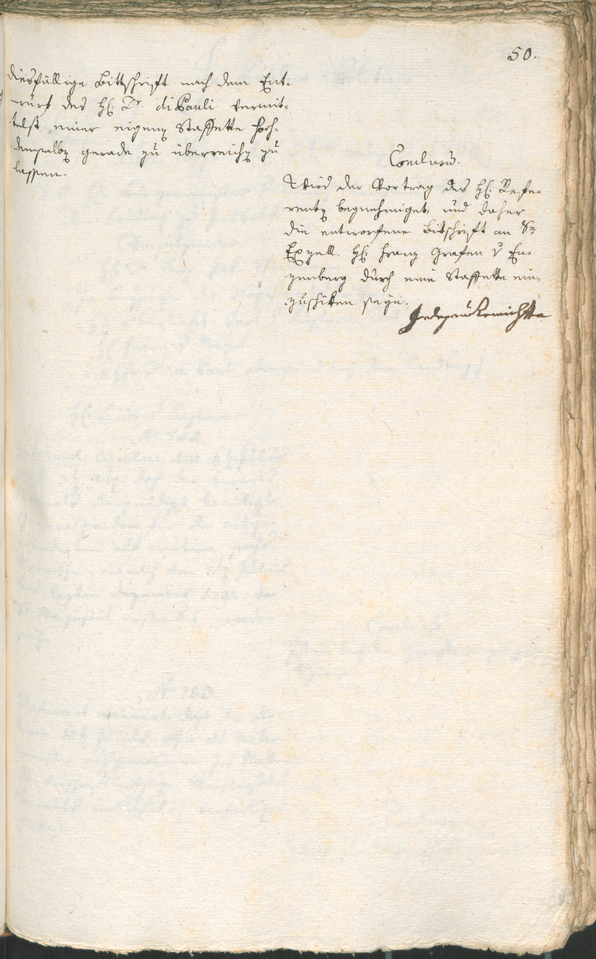 50.
diesfällige Bittschrift nach dem Ent-
wurf des H: Dr. di Pauli vermit-
telst einer eigenen Staffette hoch-
demselben gerade zu überreichen zu
lassen.
Conclusum.
Wird der Vortrag des H: Refe-
renten begnehmiget, und daher
die entworfene Bittschrift an Se
Exzell. H: Franz Grafen v En-
zenberg durch eine Staffette ein-
zuschiken seyn.